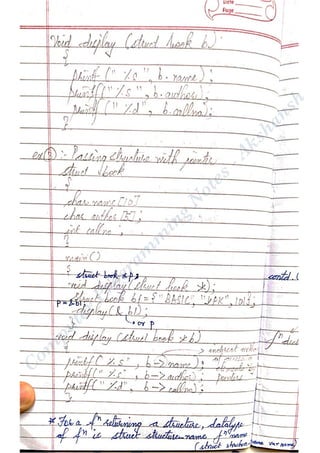 Date
Page
void display (struct book b)
{
printf ("%s", b.name);
printf ("%s", b.author);
printf ("%d", b.callno);
}
ex (3) :- Passing structure with pointer
struct book
{
char name [10]
char author [5];
int callno;
}
main()
{ struct book *p;
void display (struct book *);
contd.
struct book b1 = {"BASIC", "YPK", 101};
p=&b1;
display (&b1);
or p
void display (struct book *b)
{
printf ("%s", b->name);
printf ("%s", b->author);
printf ("%d", b->callno);
}
* For a fⁿ returning a structure, datatype
of fⁿ is struct structure-name fⁿ name